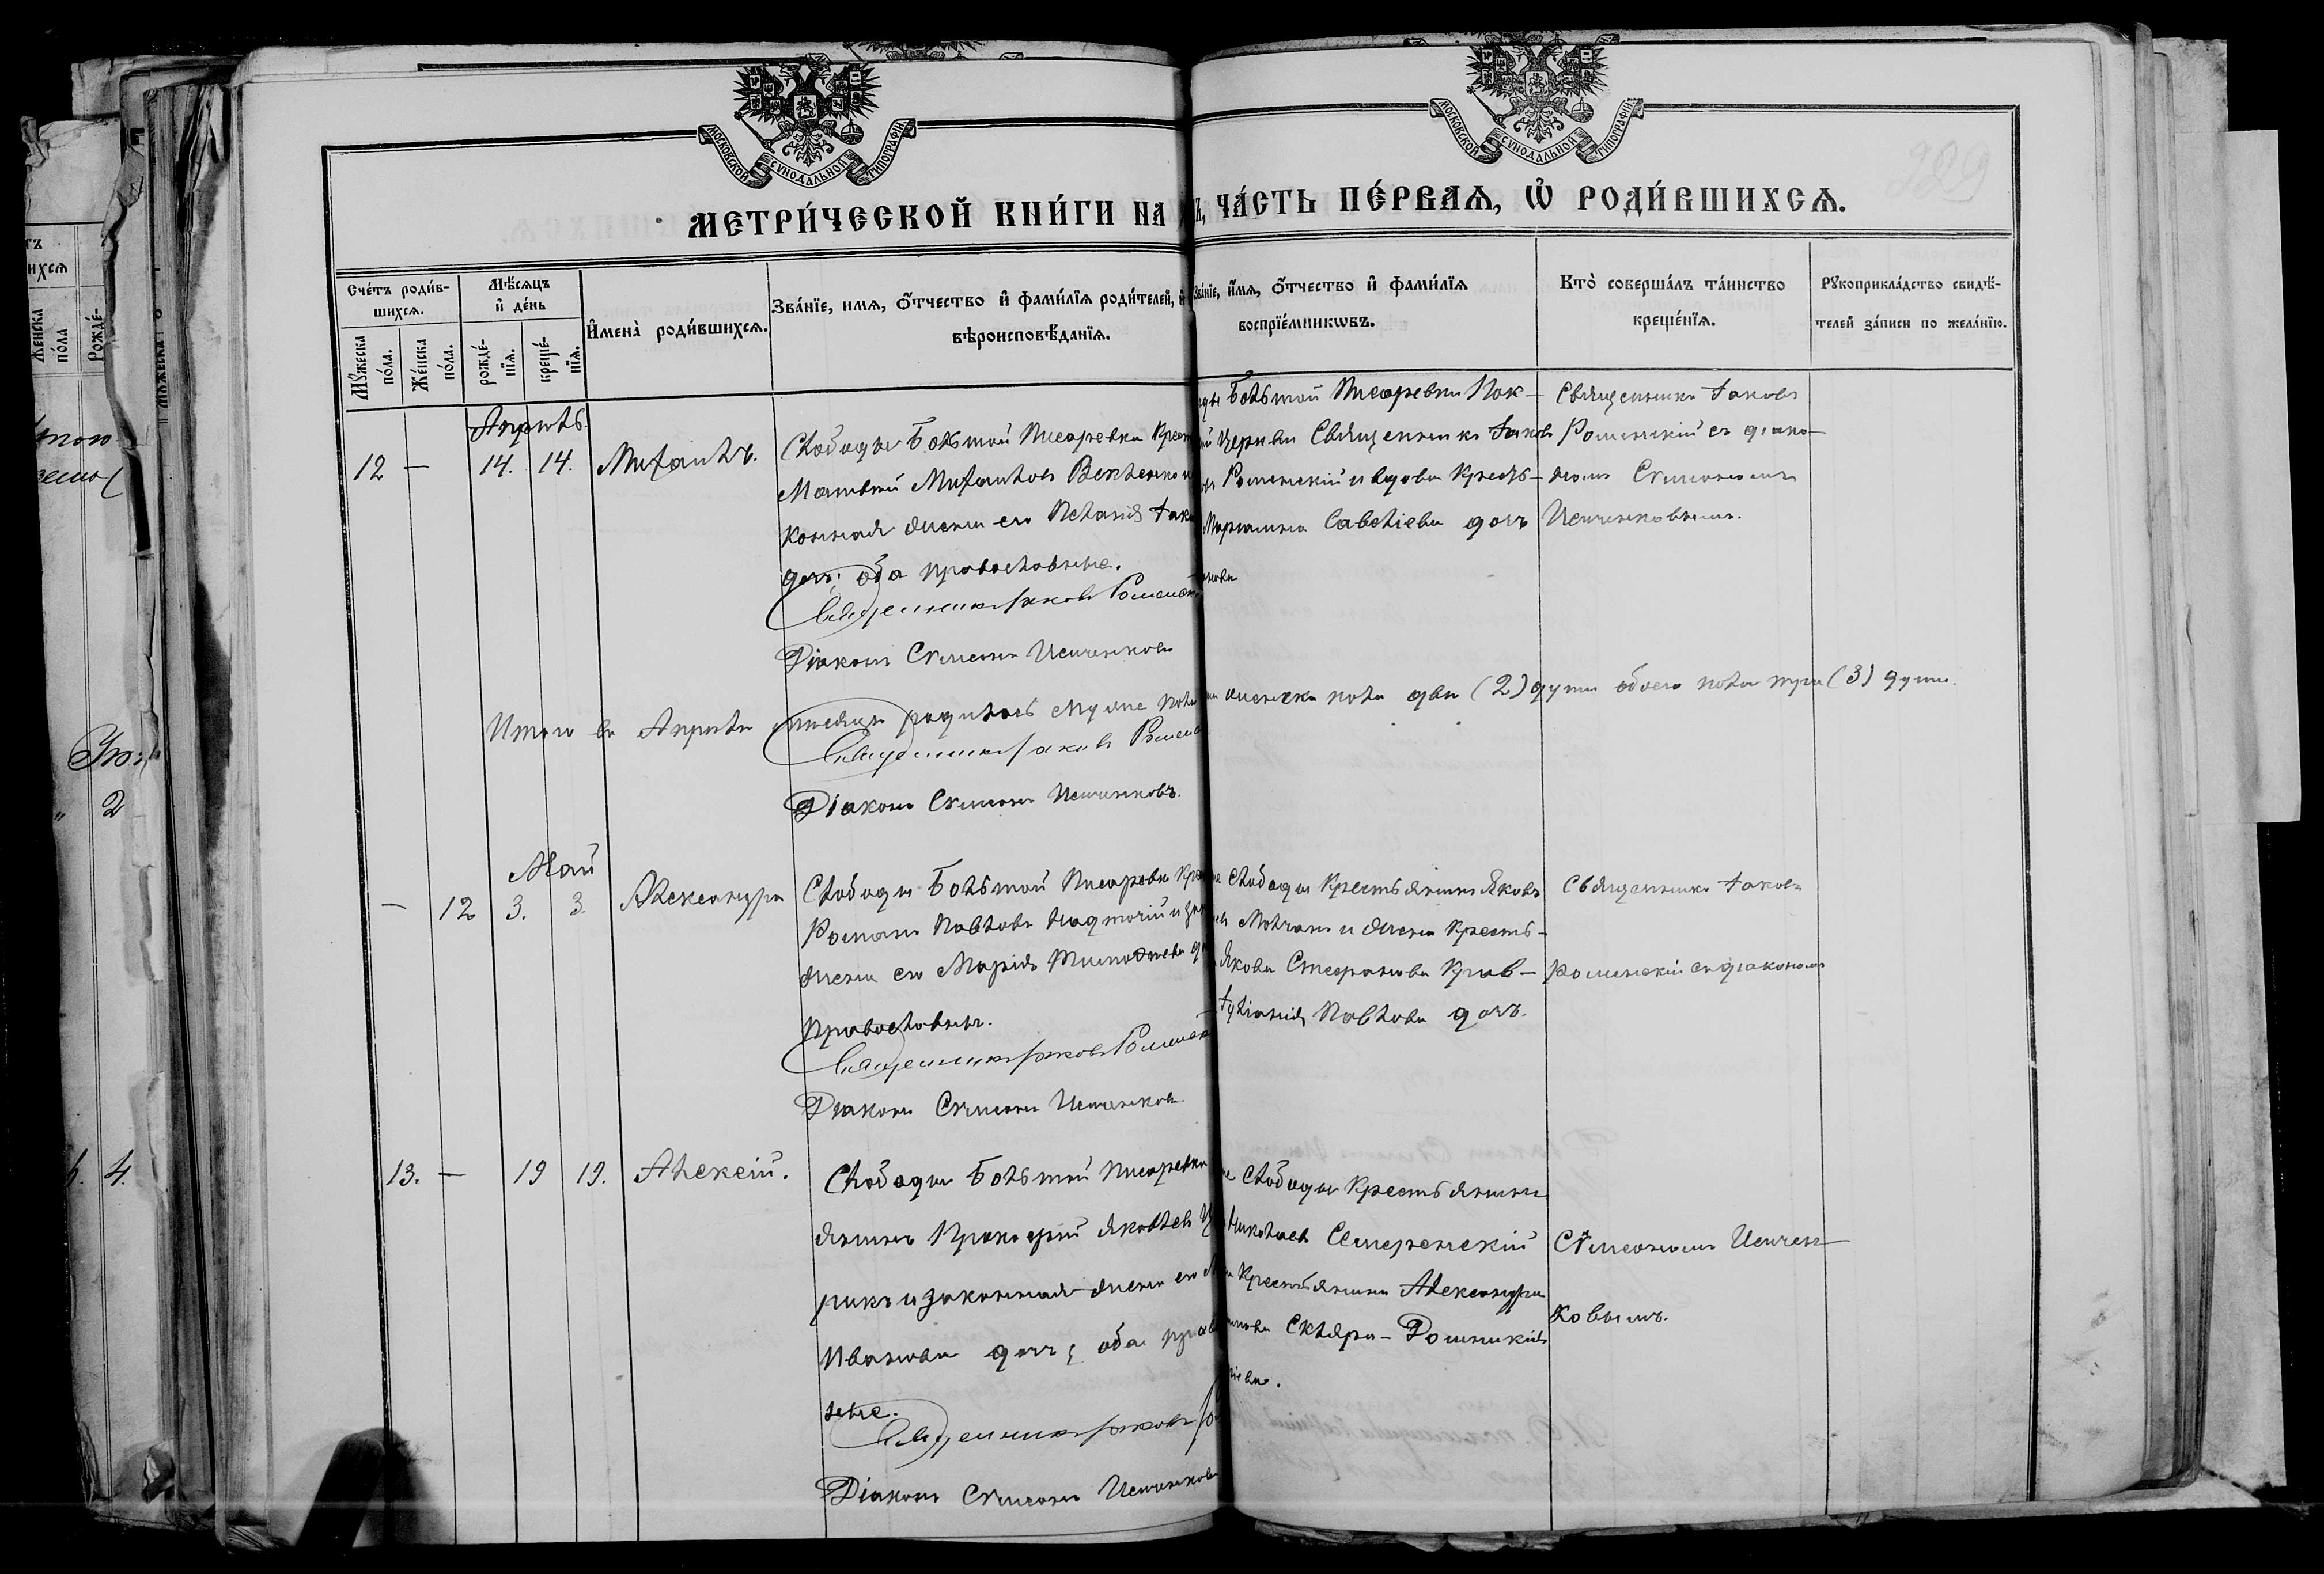 МОСКОВСКОЙ СѴНОДАЛЬНОЙ ТИПОГРАФІИ.
МОСКОВСКОЙ СѴНОДАЛЬНОЙ ТИПОГРАФІИ.
289
МЕТРИ́ЧЕСКОЙ КНИ́ГИ НА
Ъ, ЧА́СТЬ ПЕ́РВАЯ, Ѿ РОДИ́ВШИХСЯ.
Сче́тъ роди́в-
шихся.
Мꙋ́жеска
по́ла.
Же́нска
по́ла.
Мѣ́сяцъ
и҆ де́нь
рожде́-
нїя.
креще́-
нїя.
И҆мена̀ роди́вшихся.
Зва́нїе, имя, о҆́тчество и҆ фами́лїя роди́телей, и҆
вѣроисповѣ́данїя.
Зва́нїе, и҆́мя, о҆́тчество и҆ фами́лїя
воспрїе́мникѡвъ.
Кто̀ соверша́лъ та́инство
креще́нїя.
Рꙋкоприкла́дство свидѣ́-
телей за́писи по жела́нїю.
Апрѣль.
12 — 14. 14. Михаилъ.
Слободы Большой Писаревки Крест
Матвѣй Михаиловъ Векленко и
конная жена его Пелагія Іако
дочь; оба православные.
Священникъ Іаковъ Роменск
Діаконъ Сѵмеонъ Исиченковъ
Большой Писаревки Пок-
ой Церкви Священникъ Іаковъ
Роменскій и вдова Кресть-
Марѳина Савеліева дочь
нова
Священникъ Іаковъ
Роменскій съ діако-
номъ Сѵмеономъ
Исиченковымъ.
Итого въ Апрѣлѣ мѣсяцѣ родилось муже пола
женска пола два (2) души обоего пола три (3) души.
Священникъ Іаковъ Роменс
Діаконъ Сѵмеонъ Исиченковъ.
Май
— 12 3. 3. Александра
Слободы Большой Писаревки Кре
Романъ Павловъ Надточій и зак
жена его Марія Тимоѳеева д
православны.
Священникъ Іаковъ Роменск
Діаконъ Сѵмеонъ Исиченковъ.
слободы Крестьянинъ Яковъ
Молчанъ и жена Кресть-
Якова Стефанова Крав-
Іуліанія Павлова дочь.
Священникъ Іаковъ
Роменскій съ діакономъ
13. — 19 19. Алексій.
Слободы Большой Писаревки
янинъ Прокофій Яковлевъ
рикъ и законная жена его М
Иванова дочь; оба прав
ные.
Священникъ Іаковъ Ро
Діаконъ Сѵмеонъ Исиченковъ
слободы Крестьянинъ
Николаевъ Семеренскій
Крестьянина Александра
Скляра - Домникія
іева.
Сѵмеономъ Исичен-
ковымъ.